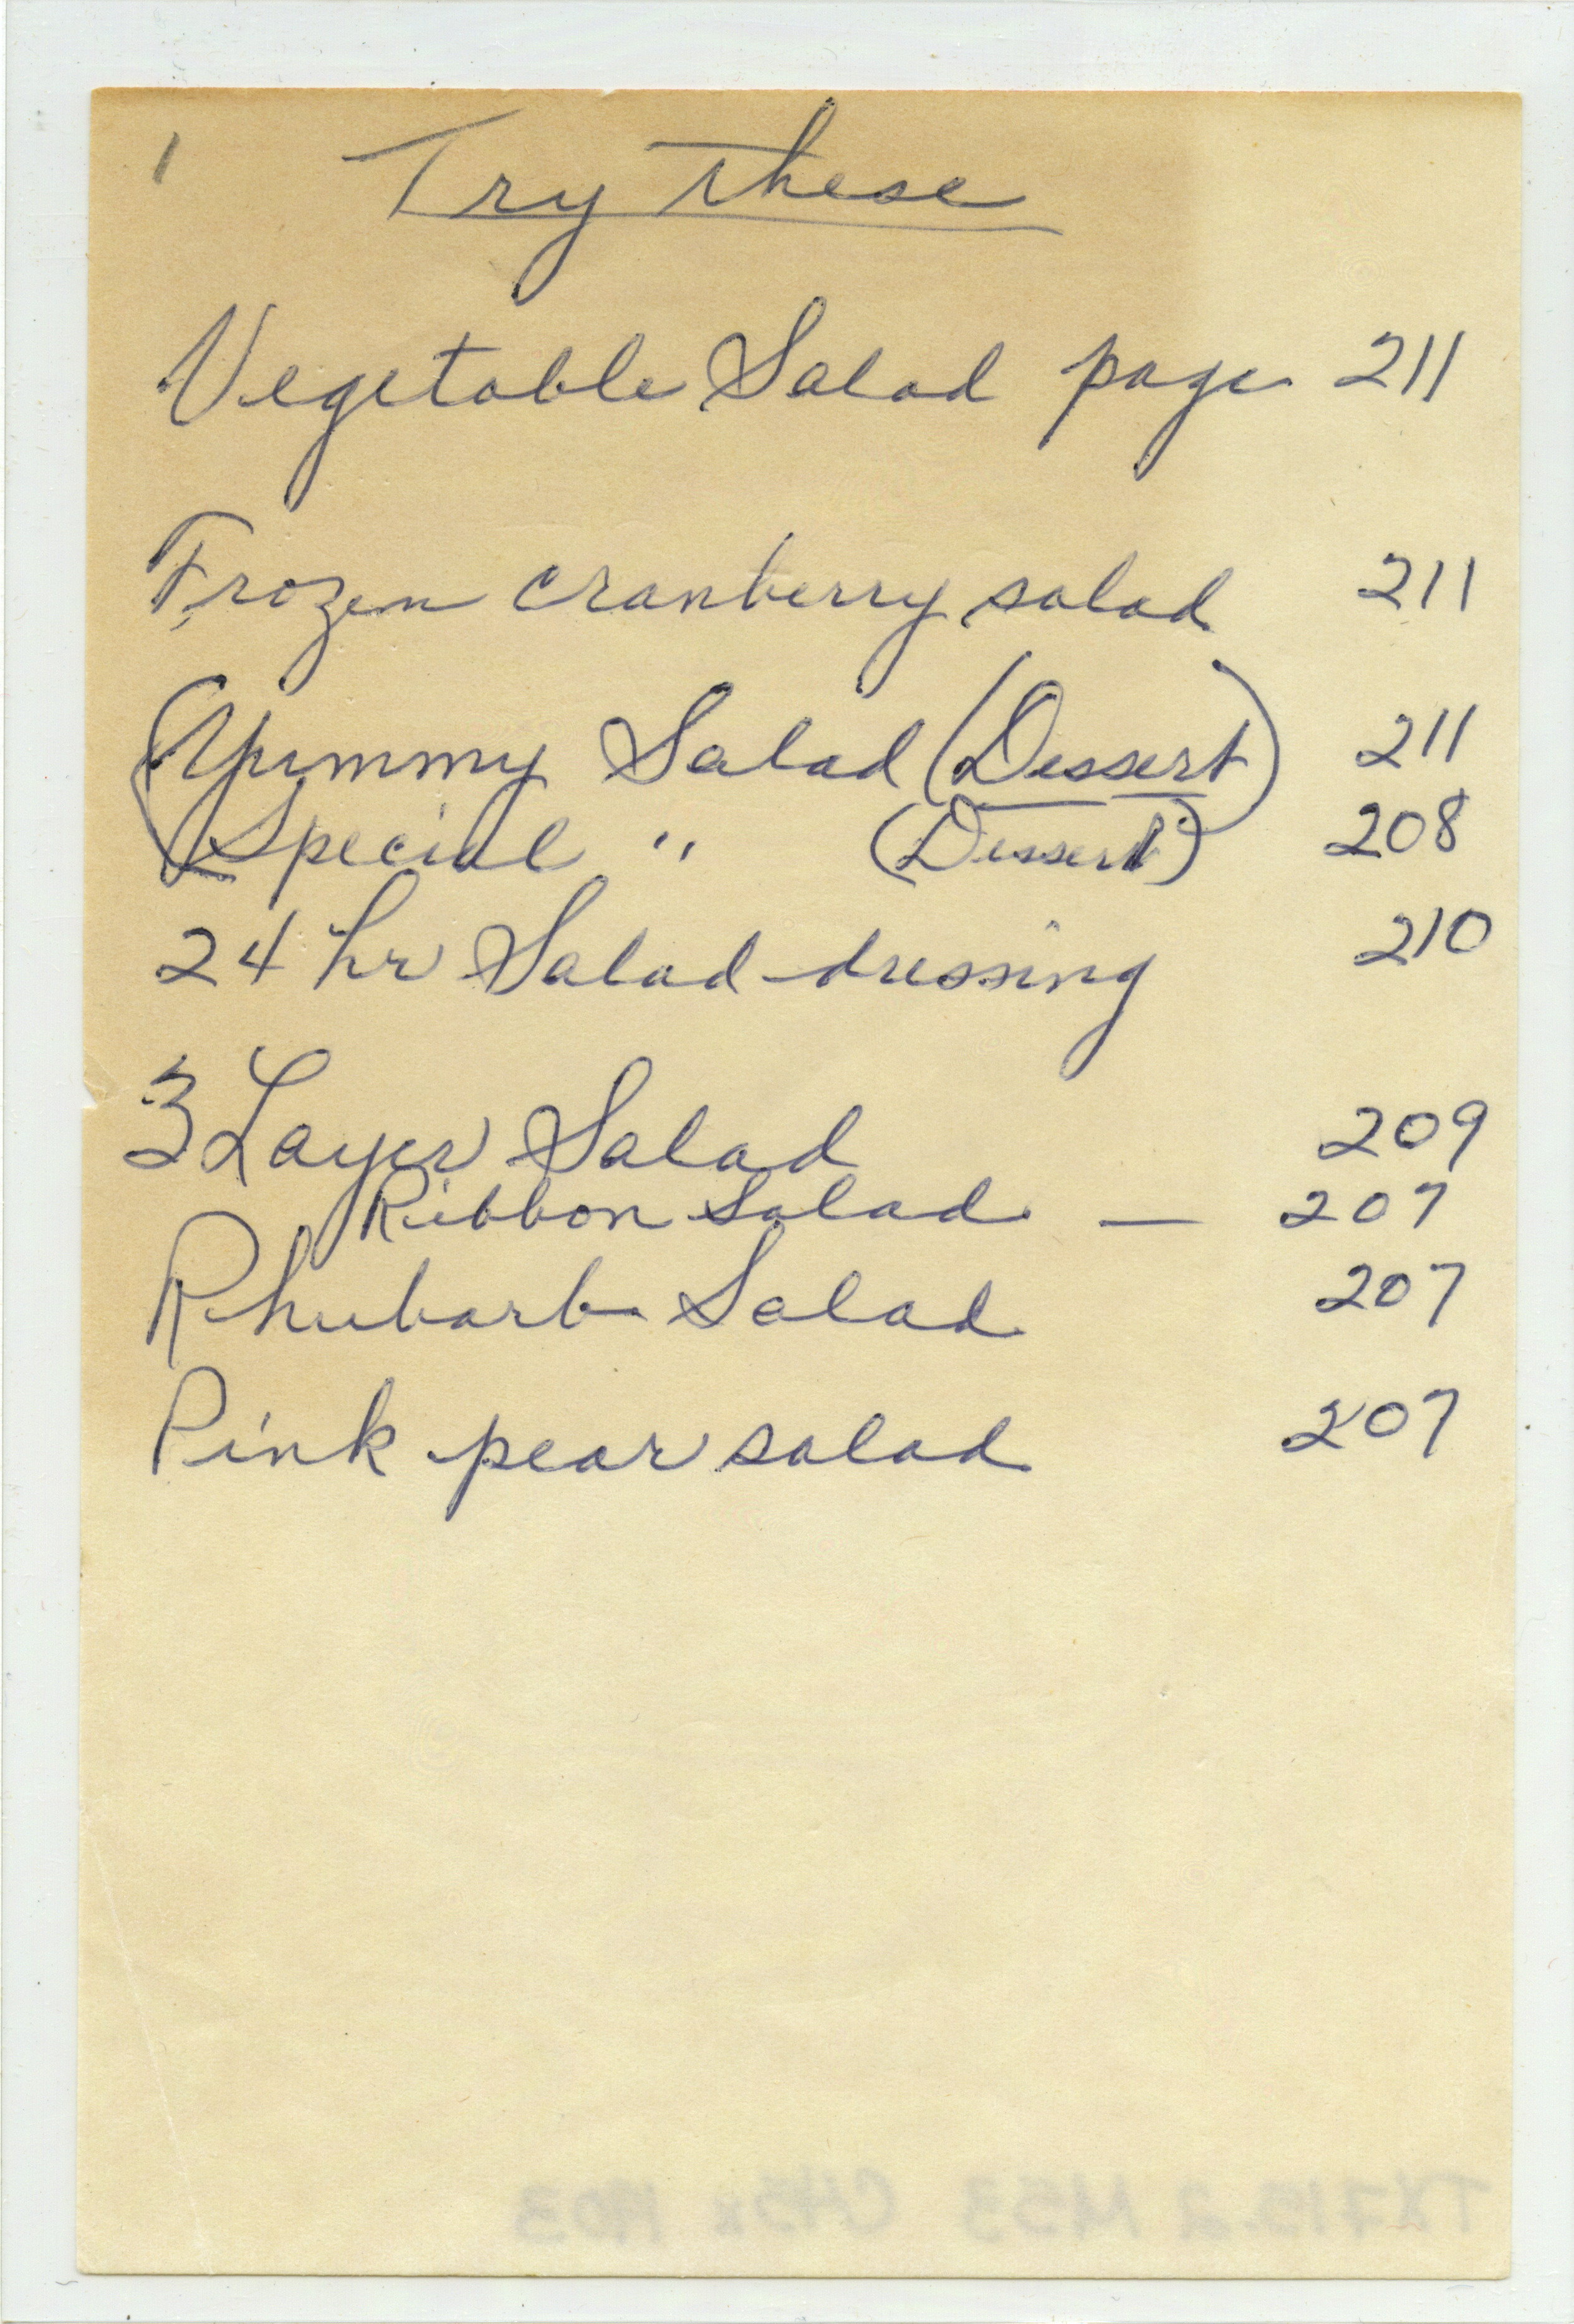 1 Try these
Vegetable Salad page 211
Frozen cranberry salad 211
(Yummy Salad (Dessert) 211
Special " (Dessert) 208
24 hr Salad dressing 210
3 Layer Salad 209
Ribbon Salad — 207
Rhubarb Salad 207
Pink pear salad 207